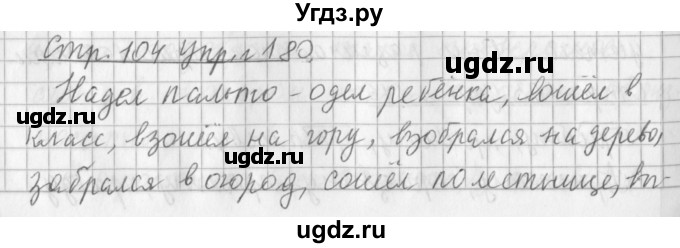 Угдз.ру
Стр. 104 упр. 180.
Надел пальто – одел ребёнка, вошёл в
ugdz.ru
ugdz.ru
класс, взошёл на гору, взобрался на дерево,
ugdz.ru
забрался в огород, сошёл по лестнице, вы-
ugdz.ru